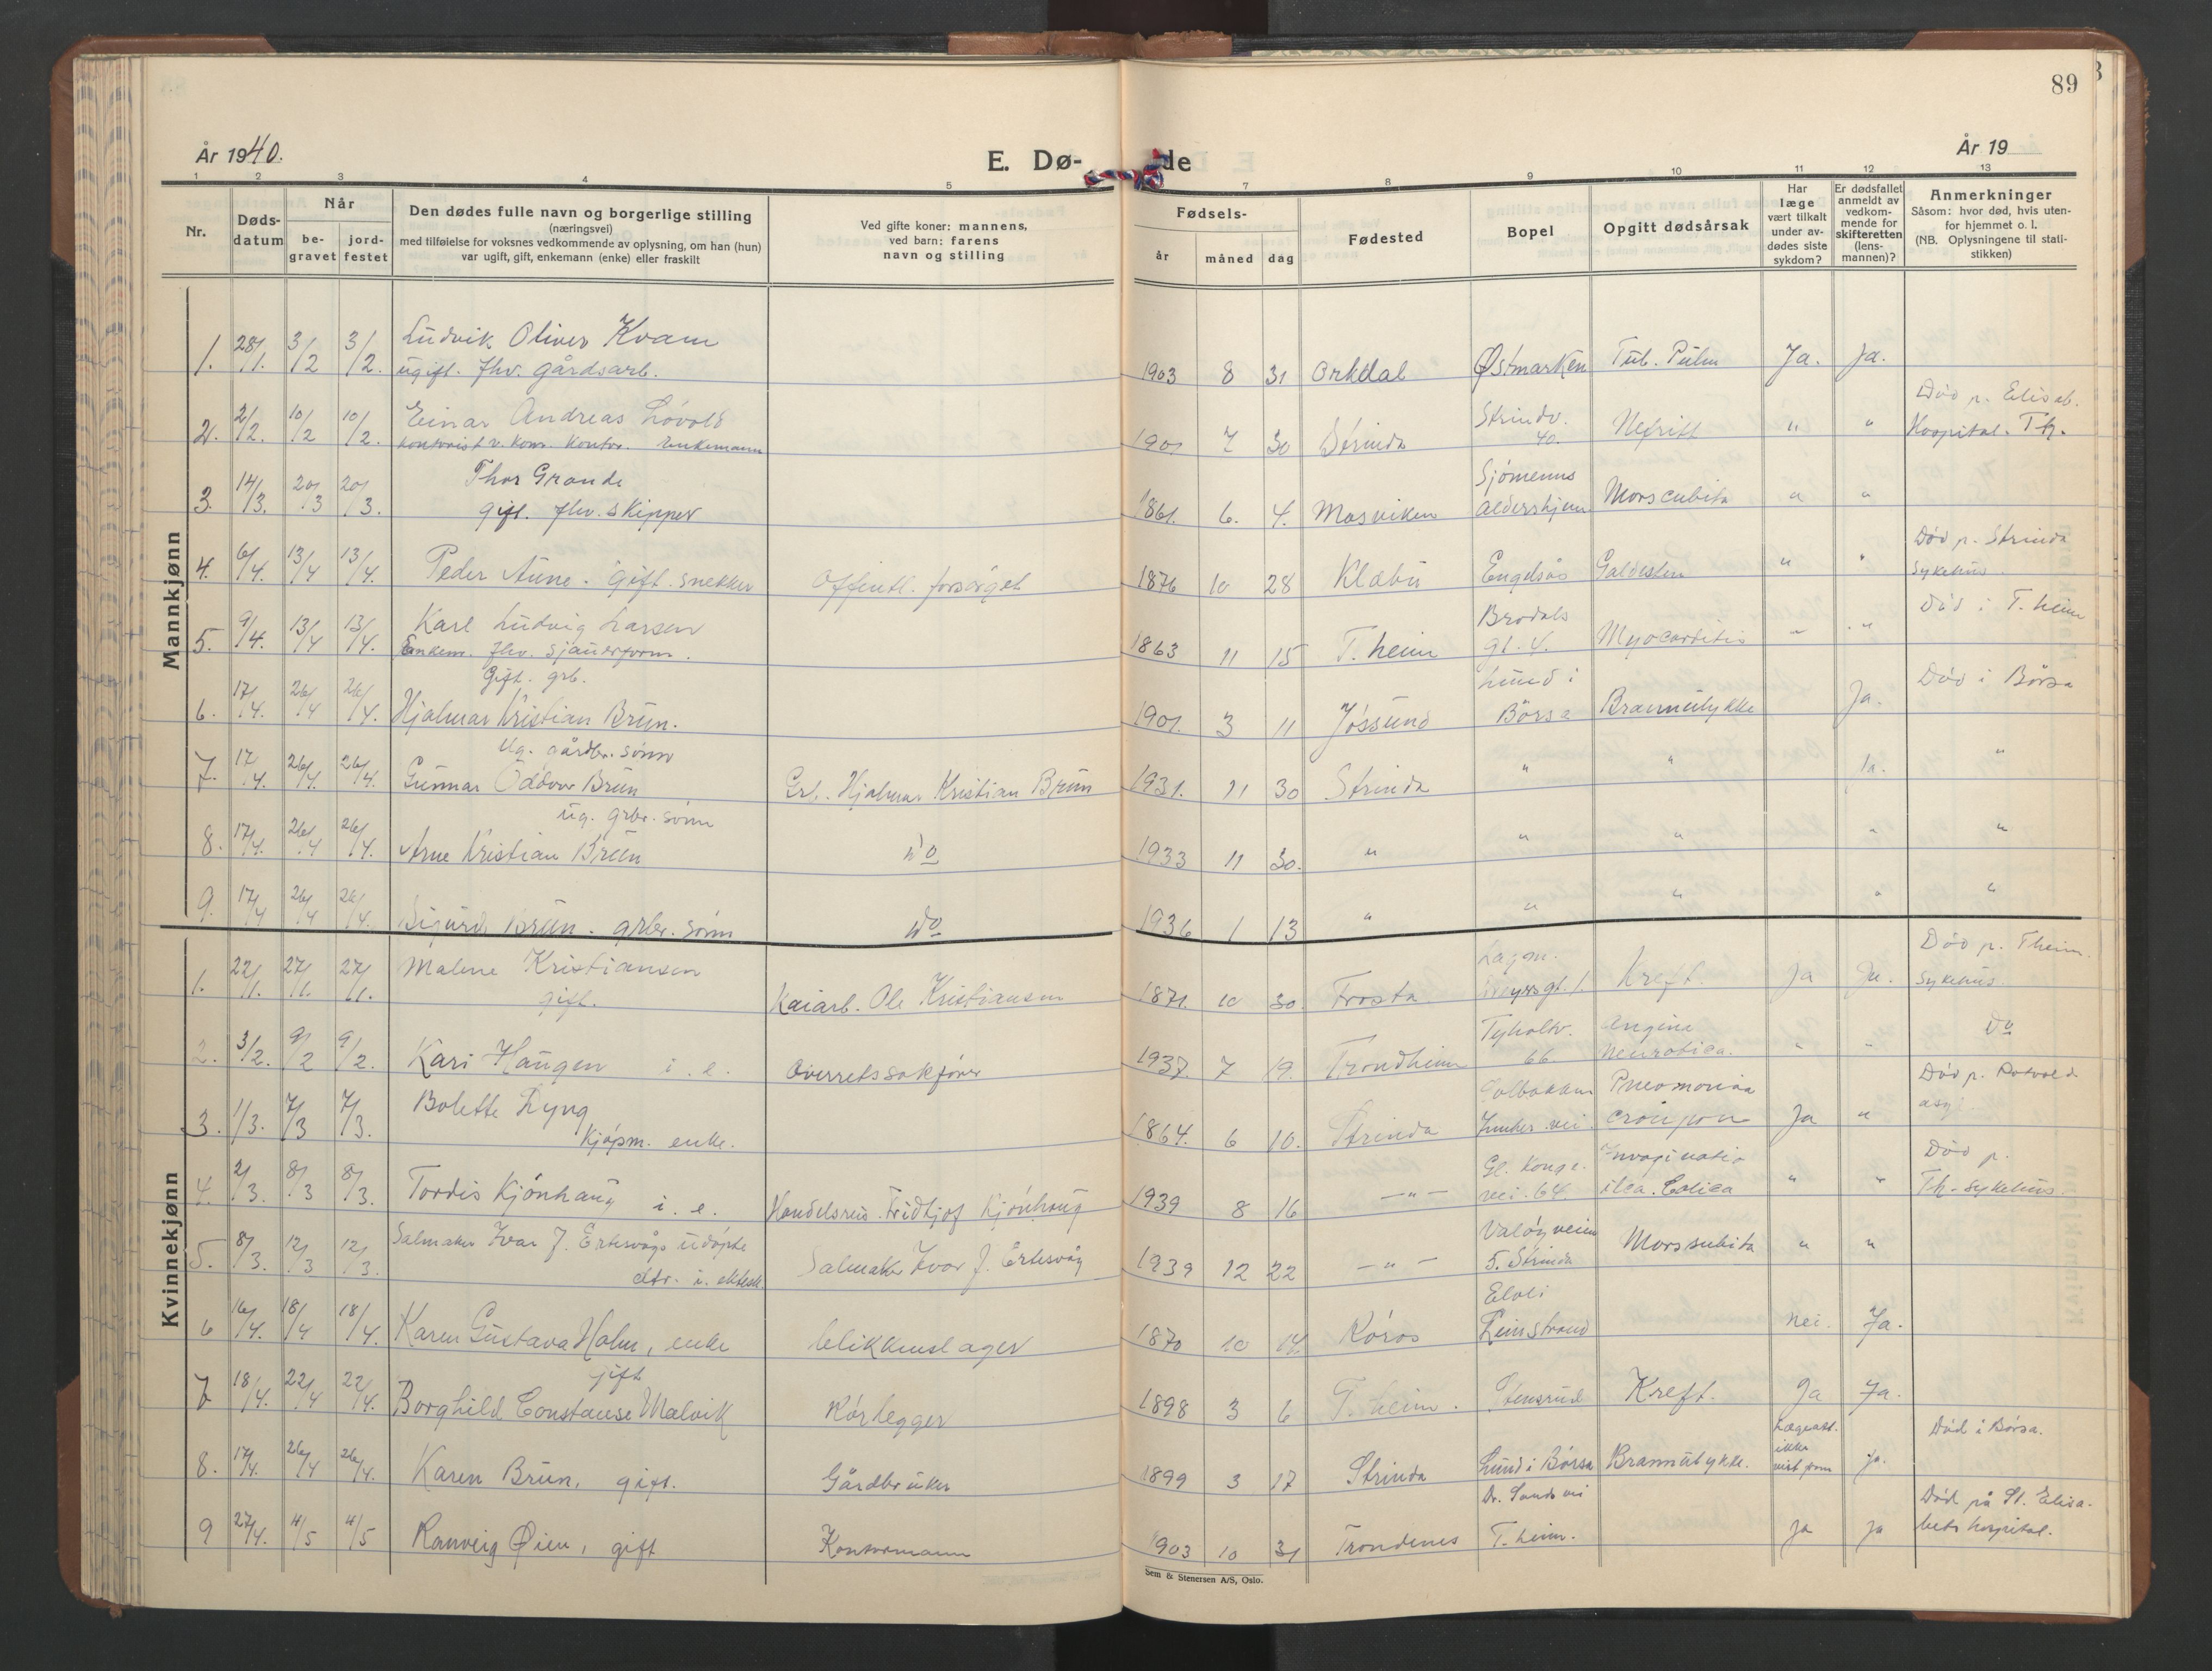 89
År 1940.
E. Dø-
de
År 19
1 2 3 4 5 7 8 9 10 11 12 13
Nr.
Døds-
datum
Når
be-
gravet
jord-
festet
Den dødes fulle navn og borgerlige stilling
(næringsvei)
med tilføielse for voksnes vedkommende av oplysning, om han (hun)
var ugift, gift, enkemann (enke) eller fraskilt
Ved gifte koner: mannens,
ved barn: farens
navn og stilling
Fødsels-
år måned dag
Fødested
Bopel
Opgitt dødsårsak
Har
læge
vært tilkalt
under av-
dødes siste
sykdom?
Er dødsfallet
anmeldt av
vedkom-
mende for
skifteretten
(lens-
mannen)?
Anmerkninger
Såsom: hvor død, hvis uten-
for hjemmet o. l.
(NB. Oplysningene til stati-
stikken)
Mannkjønn
Ludvik Oliver Kvam
1. 28/1. 3/2 3/2. ugift. fhv. gårdsarb. 1903 8 31 Orkdal Østmarken Tub. Pulm Ja. Ja.
Einar Andreas Løvold Strindv. Død p. Elisab.
2. 2/2. 10/2 10/2. kontorist v. kom. kontor. Enkemann 1901 7 30 Strinda 40. Nefritt " " Hospital. Th.
Thor Grande Sjømenns
3. 14/3. 20/3 20/3. gift. fhv. skipper 1861. 6. 4. Mosviken aldershjem Mors cubita " "
Død p. Strinda
4. 6/4. 13/4 13/4. Peder Aune. gift. snekker Offentl. forsørget 1876 10 28 Klæbu Engelsås Galdesten " " sykehus.
Karl Ludvig Larsen Brodals Død i T.heim
5. 9/4. 13/4 13/4. Enkem. fhv. sjauerform. 1863 11 15 T.heim gt. 4. Myocarditis " "
Gift. grb. Lund i Død i Börsa
6. 17/4. 26/4 26/4. Hjalmar Kristian Brün. 1901. 3 11 Jøssund Börsa Brannulykke Ja.
Ug. gårdbr. sønn
7. 17/4. 26/4 26/4. Gunnar Oddvar Brün Grb. Hjalmar Kristian Brün 1931. 11 30 Strinda " " Ja. "
ug. grbr. sønn
8. 17/4. 26/4 26/4. Arne Kristian Brün do 1933 11 30. " " " " "
9. 17/4 26/4 26/4. Sigurd Brün. grbr. sønn do 1936 1 13 " " " " "
Kvinnekjønn
Malene Kristiansen Lagm. Død p. Theim.
1. 22/1. 27/1. 27/1. gift. Kaiarb. Ole Kristiansen 1871. 10 30. Frosta gt. 1 Kreft. Ja Ja. sykehus.
Tyholtv. Angina do
2. 3/2. 9/2 9/2. Kari Haugen i. e. Overretssakfører 1937. 7 19. Trondheim 66. neurotica. " "
Bolette Lyng Pneomonia Død p. Rotvold
3. 1/3. 7/3 7/3. Kjøpm. enke. 1864. 6 10. Strinda vei croupon Ja " asyl.
Gl. Konge. Invaginatio Død p.
4. 2/3. 8/3 8/3. Tordis Kjønhaug i. e. Handelsreis. Fridtjof Kjønhaug 1939 8 16 — " — vei. 64. ilca. Colica " " Th- sykehus.
Salmaker Ivar J. Ertesvågs udøpte Valøyveien
5. 8/3. 12/3 12/3. dtr. i. ektesk. Salmaker Ivar J. Ertesvåg 1939 12 22 — " — 5. Strinda Mors subita " "
Elvli
6 16/4. 18/4 18/4. Karen Gustava Holm, enke blikkenslager 1870 10 14 Røros Leinstrand nei. Ja.
gift
7 18/4. 22/4 22/4. Borghild Constanse Malvik Rørlegger 1898 3 6 T.heim. Stensrud Kreft. Ja Ja.
Lægeatt. ikke Død i Børsa.
8. 17/4. 26/4 26/4. Karen Brün, gift. Gårdbruker 1899 3 17 Strinda Lund i Børsa Brannulykke. Ja.
Dr. Sands vei Død på St. Elisa-
9 27/4. 4/5 4/5 Ranveig Øien, gift Kontormann 1903 10 31 Trondenes T.heim. Ja Ja bets hospital.
Sem & Stenersen A/S, Oslo.